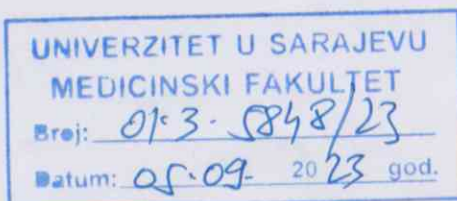 UNIVERZITET U SARAJEVU
MEDICINSKI FAKULTET
Broj: 01-3-5848/23
Datum: 05.09. 2023 god.